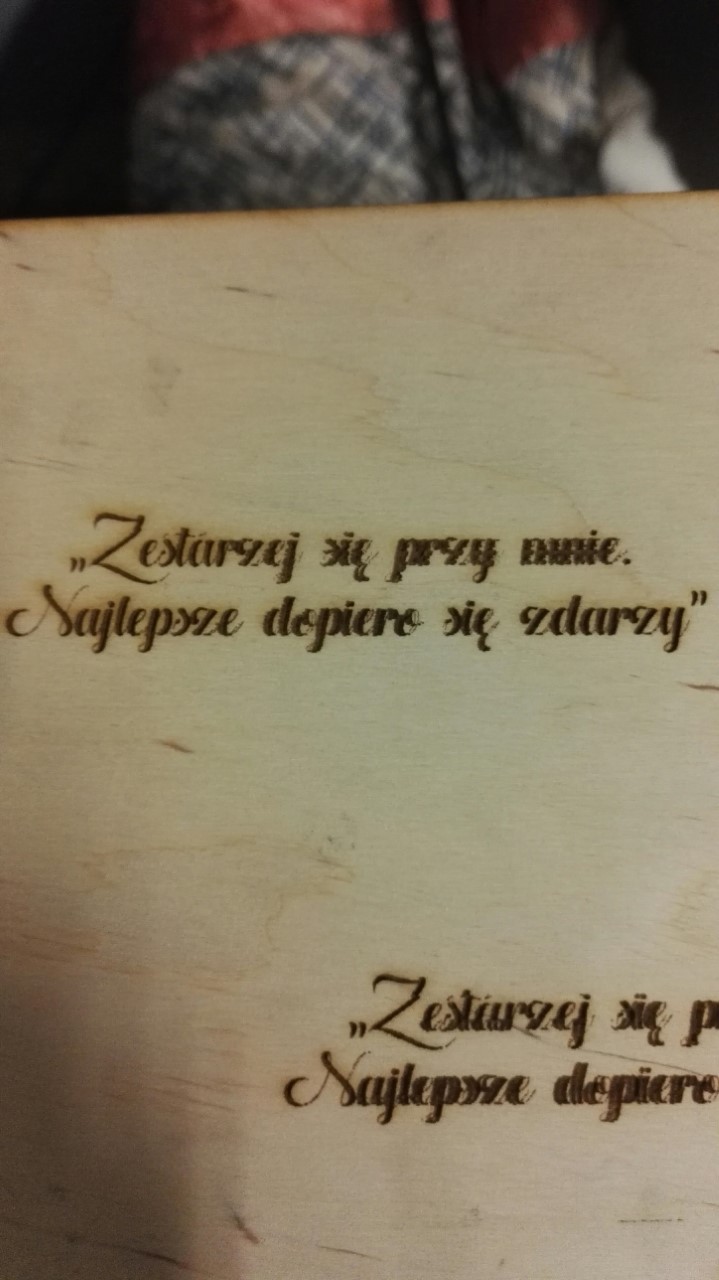 „Zestarzej się przy mnie.
Najlepsze dopiero się zdarzy”
„Zestarzej się
Najlepsze dopiero